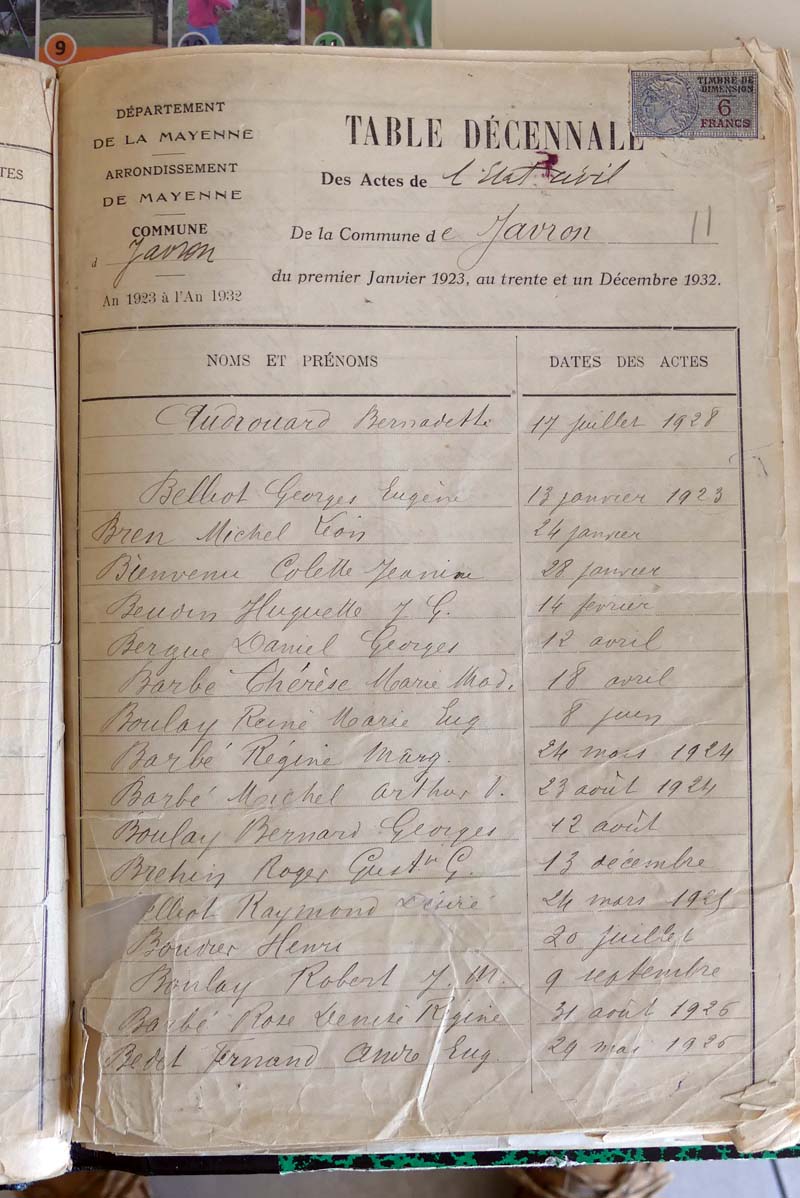 9
10
11
TES
DÉPARTEMENT
DE LA MAYENNE
ARRONDISSEMENT
DE MAYENNE
COMMUNE
d Javron
An 1923 à l'An 1932
TIMBRE DE
DIMENSION
6
FRANCS
TABLE DÉCENNALE
Des Actes de l'Etat civil
De la Commune de Javron 11
du premier Janvier 1923, au trente et un Décembre 1932.
NOMS ET PRÉNOMS DATES DES ACTES
Audrouard Bernadette 17 juillet 1928
Belliot Georges Eugène 13 janvier 1923
Bren Michel Léon 24 janvier
Bienvenu Colette Jeanine 28 janvier
Beudin Huguette J G. 14 fevrier
Bergue Daniel Georges 12 avril
Barbé Thérèse Marie Mad. 18 avril
Boulay René Marie Eug 8 juin
Barbé Régine Marg. 24 mars 1924
Barbé Michel Arthur V. 23 août 1924
Boulay Bernard Georges 12 août
Brehin Roger G. 13 décembre
elliot Raymond Désiré 24 mars 1925
Boudier Henri 20 juillet
Boulay Robert J. M. 9 septembre
Barbé Rose Denise Régine 31 août 1926
Bedet Fernand André Eug. 29 mai 1926